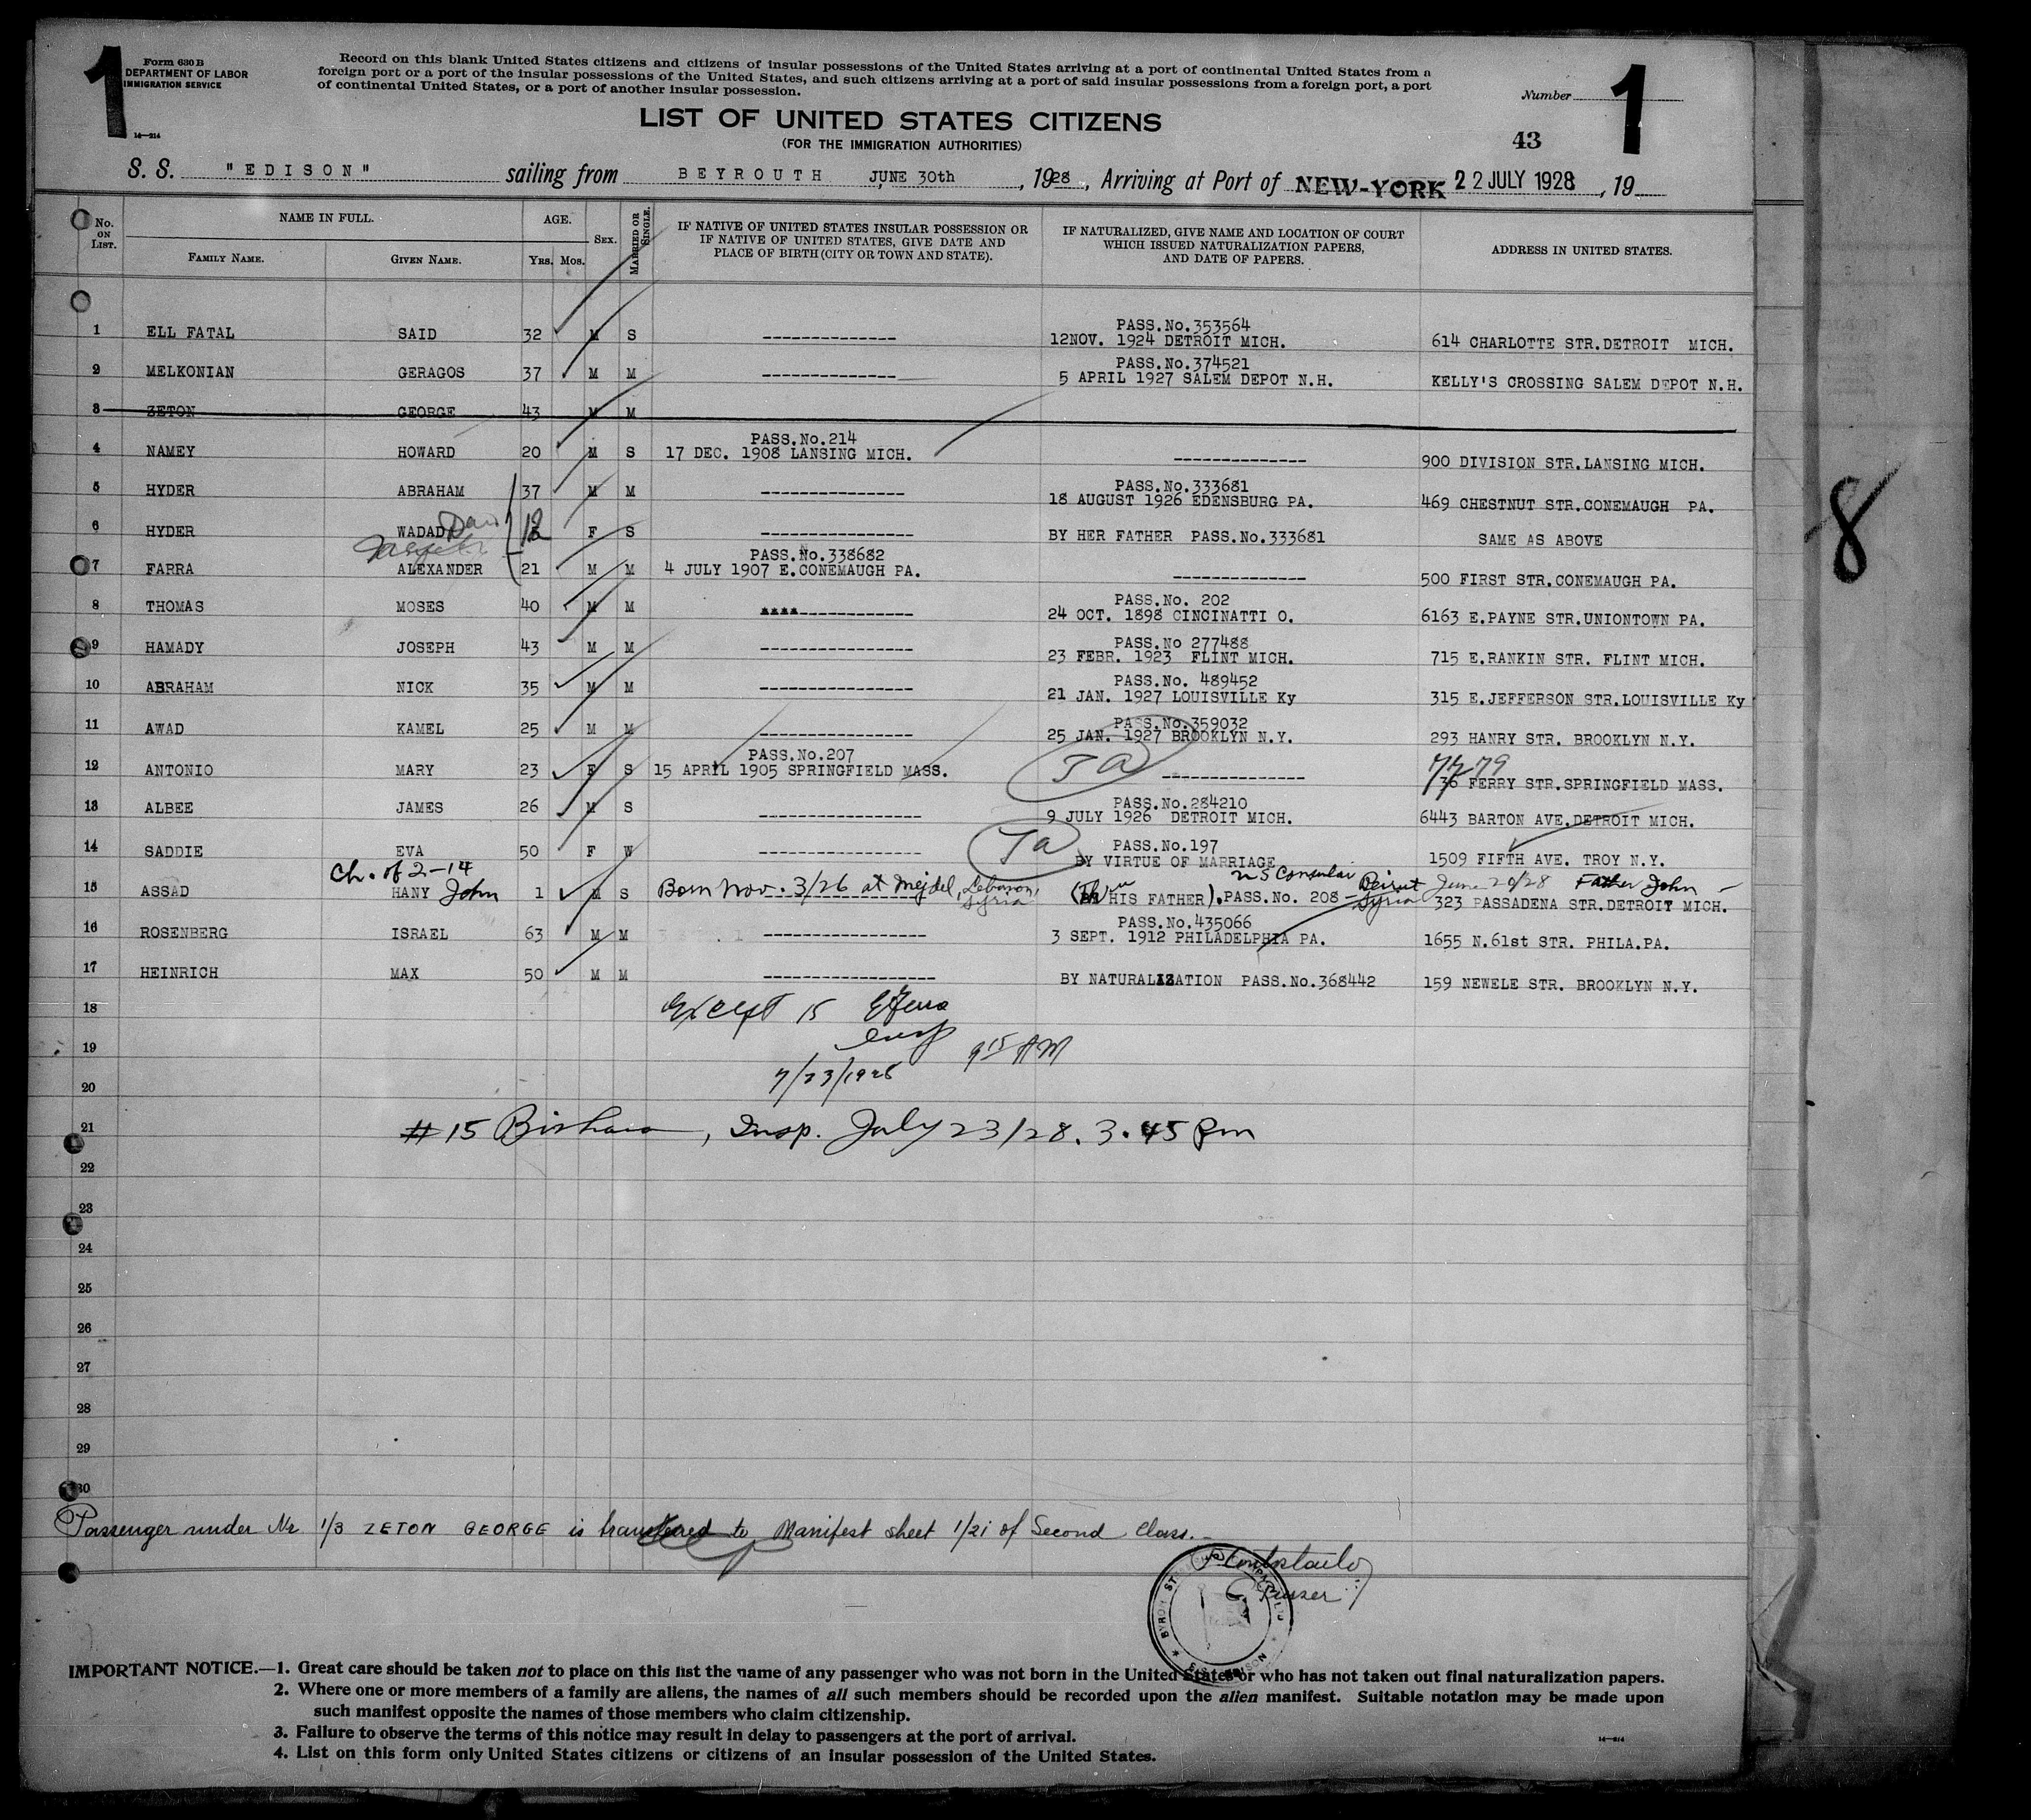 1
Form 630 B
DEPARTMENT OF LABOR
IMMIGRATION SERVICE
14—214
Record on this blank United States citizens and citizens of insular possessions of the United States arriving at a port of continental United States from a
foreign port or a port of the insular possessions of the United States, and such citizens arriving at a port of said insular possessions from a foreign port, a port
of continental United States, or a port of another insular possession.
Number
1
LIST OF UNITED STATES CITIZENS
(FOR THE IMMIGRATION AUTHORITIES)
43
S. S. "EDISON" sailing from BEYROUTH JUNE 30th, 1928, Arriving at Port of NEW-YORK 22 JULY 1928, 19
No. ON LIST. NAME IN FULL. FAMILY NAME. GIVEN NAME. AGE. YRS. MOS. SEX. MARRIED OR SINGLE. IF NATIVE OF UNITED STATES INSULAR POSSESSION OR IF NATIVE OF UNITED STATES, GIVE DATE AND PLACE OF BIRTH (CITY OR TOWN AND STATE). IF NATURALIZED, GIVE NAME AND LOCATION OF COURT WHICH ISSUED NATURALIZATION PAPERS, AND DATE OF PAPERS. ADDRESS IN UNITED STATES.
1 ELL FATAL SAID 32 M S -------------- PASS.No.353564 12NOV. 1924 DETROIT MICH. 614 CHARLOTTE STR.DETROIT MICH.
2 MELKONIAN GERAGOS 37 M M -------------- PASS.No.374521 5 APRIL 1927 SALEM DEPOT N.H. KELLY'S CROSSING SALEM DEPOT N.H.
3 ZETON GEORGE 43 M M
4 NAMEY HOWARD 20 M S PASS.No.214 17 DEC. 1908 LANSING MICH. -------------- 900 DIVISION STR.LANSING MICH.
5 HYDER ABRAHAM 37 M M -------------- PASS.No.333681 18 AUGUST 1926 EDENSBURG PA. 469 CHESTNUT STR.CONEMAUGH PA.
6 HYDER WADAD 12 F S -------------- BY HER FATHER PASS.No.333681 SAME AS ABOVE
7 FARRA ALEXANDER 21 M M PASS.No.338682 4 JULY 1907 E.CONEMAUGH PA. -------------- 500 FIRST STR.CONEMAUGH PA.
8 THOMAS MOSES 40 M M -------------- PASS.No. 202 24 OCT. 1898 CINCINATTI O. 6163 E.PAYNE STR.UNIONTOWN PA.
9 HAMADY JOSEPH 43 M M -------------- PASS.No 277488 23 FEBR. 1923 FLINT MICH. 715 E.RANKIN STR. FLINT MICH.
10 ABRAHAM NICK 35 M M -------------- PASS.No. 489452 21 JAN. 1927 LOUISVILLE Ky 315 E.JEFFERSON STR.LOUISVILLE Ky
11 AWAD KAMEL 25 M M -------------- PASS.No.359032 25 JAN. 1927 BROOKLYN N.Y. 293 HANRY STR. BROOKLYN N.Y.
12 ANTONIO MARY 23 F S PASS.No.207 15 APRIL 1905 SPRINGFIELD MASS. -------------- 77-79 36 FERRY STR.SPRINGFIELD MASS.
13 ALBEE JAMES 26 M S -------------- PASS.No.284210 9 JULY 1926 DETROIT MICH. 6443 BARTON AVE.DETROIT MICH.
14 SADDIE EVA 50 F W -------------- PASS.No.197 BY VIRTUE OF MARRIAGE 1509 FIFTH AVE. TROY N.Y.
Ch. of 2-14
15 ASSAD HANY John 1 M S Born Nov. 3/26 at Mejdel, Lebanon, Syria (Thru HIS FATHER). PASS.No. 208 - U S Consular Beirut Syria June 20/28 Father John - 323 PASSADENA STR.DETROIT MICH.
16 ROSENBERG ISRAEL 63 M M -------------- PASS.No.435066 3 SEPT. 1912 PHILADELPHIA PA. 1655 N.61st STR. PHILA.PA.
17 HEINRICH MAX 50 M M -------------- BY NATURALIZATION PASS.No.368442 159 NEWELE STR. BROOKLYN N.Y.
18 Except 15
19 insp 9 15 AM
20 7/23/1928
21 #15 , Insp. July 23/28. 3.45 pm
22
23
24
25
26
27
28
29
30
Passenger under Nr 1/3 ZETON GEORGE is transfered to Manifest sheet 1/21 of Second Class.
Purser
8
IMPORTANT NOTICE.—1. Great care should be taken not to place on this list the name of any passenger who was not born in the United States or who has not taken out final naturalization papers.
2. Where one or more members of a family are aliens, the names of all such members should be recorded upon the alien manifest. Suitable notation may be made upon
such manifest opposite the names of those members who claim citizenship.
3. Failure to observe the terms of this notice may result in delay to passengers at the port of arrival.
4. List on this form only United States citizens or citizens of an insular possession of the United States.
14—214